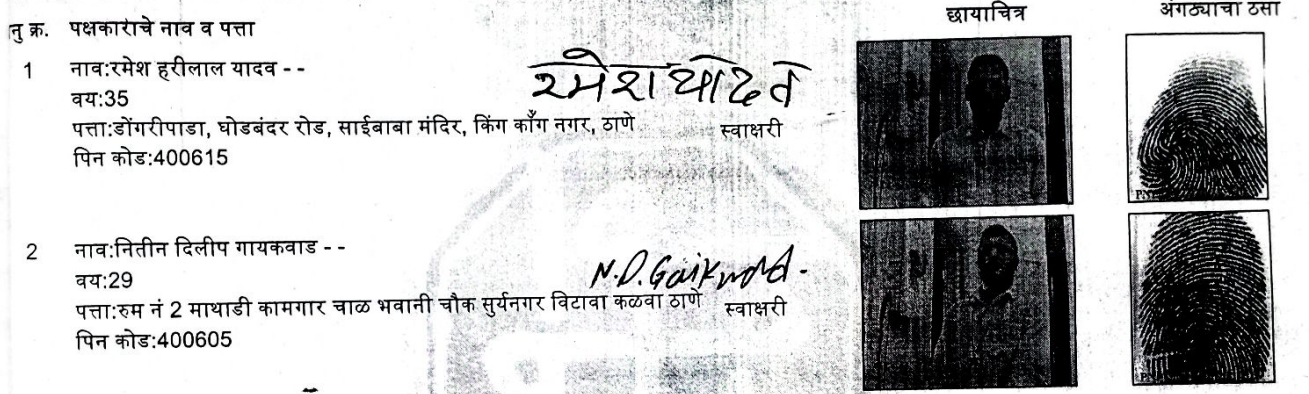 नु क्र. पक्षकाराचे नाव व पत्ता छायाचित्र अंगठ्याचा ठसा
1 नाव:रमेश हरीलाल यादव - -
वय:35
पत्ता:डोंगरीपाडा, घोडबंदर रोड, साईबाबा मंदिर, किंग काँग नगर, ठाणे
पिन कोड:400615
रमेश यादव
स्वाक्षरी
2 नाव:नितीन दिलीप गायकवाड - -
वय:29
पत्ता:रुम नं 2 माथाडी कामगार चाळ भवानी चौक सुर्यनगर विटावा कळवा ठाणे
पिन कोड:400605
N.D.Gaikwad.
स्वाक्षरी